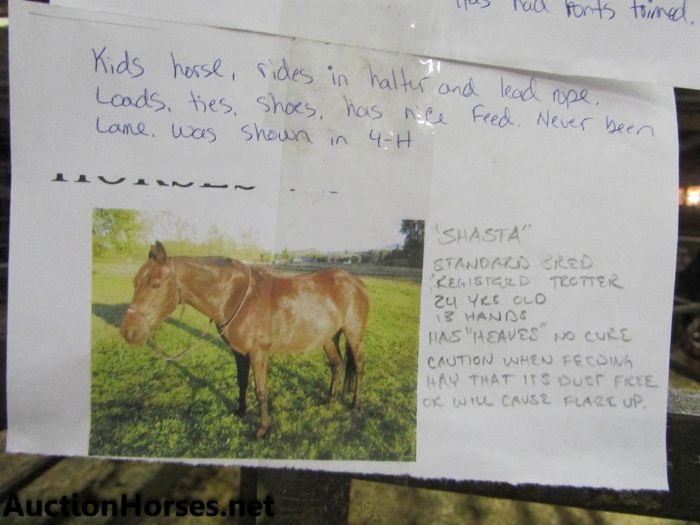 Has had fronts trimed.
Kids horse, rides in halter and lead rope.
Loads, ties, shoes, has nice feed. Never been
Lame. Was shown in 4-H
"SHASTA"
STANDARD BRED
"REGISTERD TROTTER
24 YRS OLD
13 HANDS
HAS "HEAVES" NO CURE
CAUTION WHEN FEEDING
HAY THAT ITS DUST FREE
OR WILL CAUSE FLARE UP.
AuctionHorses.net